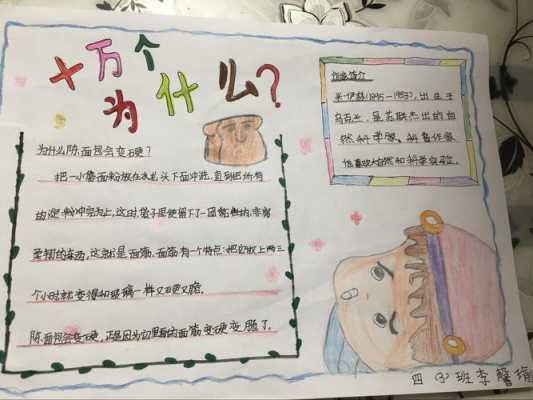 十万个为什么?
作者简介
米·伊林(1895-1953),出生于
乌克兰,是苏联杰出的自
然科学家、科普作家
为什么陈面包会变硬?
把一小袋面粉放在水龙头下面冲洗,直到把所有
的淀粉冲完为止,这时,袋子里便留下了一团黏糊糊的、非常
柔韧的东西,这就是面筋。面筋有一个特点:把它放上两三
个小时就变得和玻璃一样又硬又脆。
陈面包会变硬,正是因为它里面的面筋变硬变脆了。
四(3)班李馨